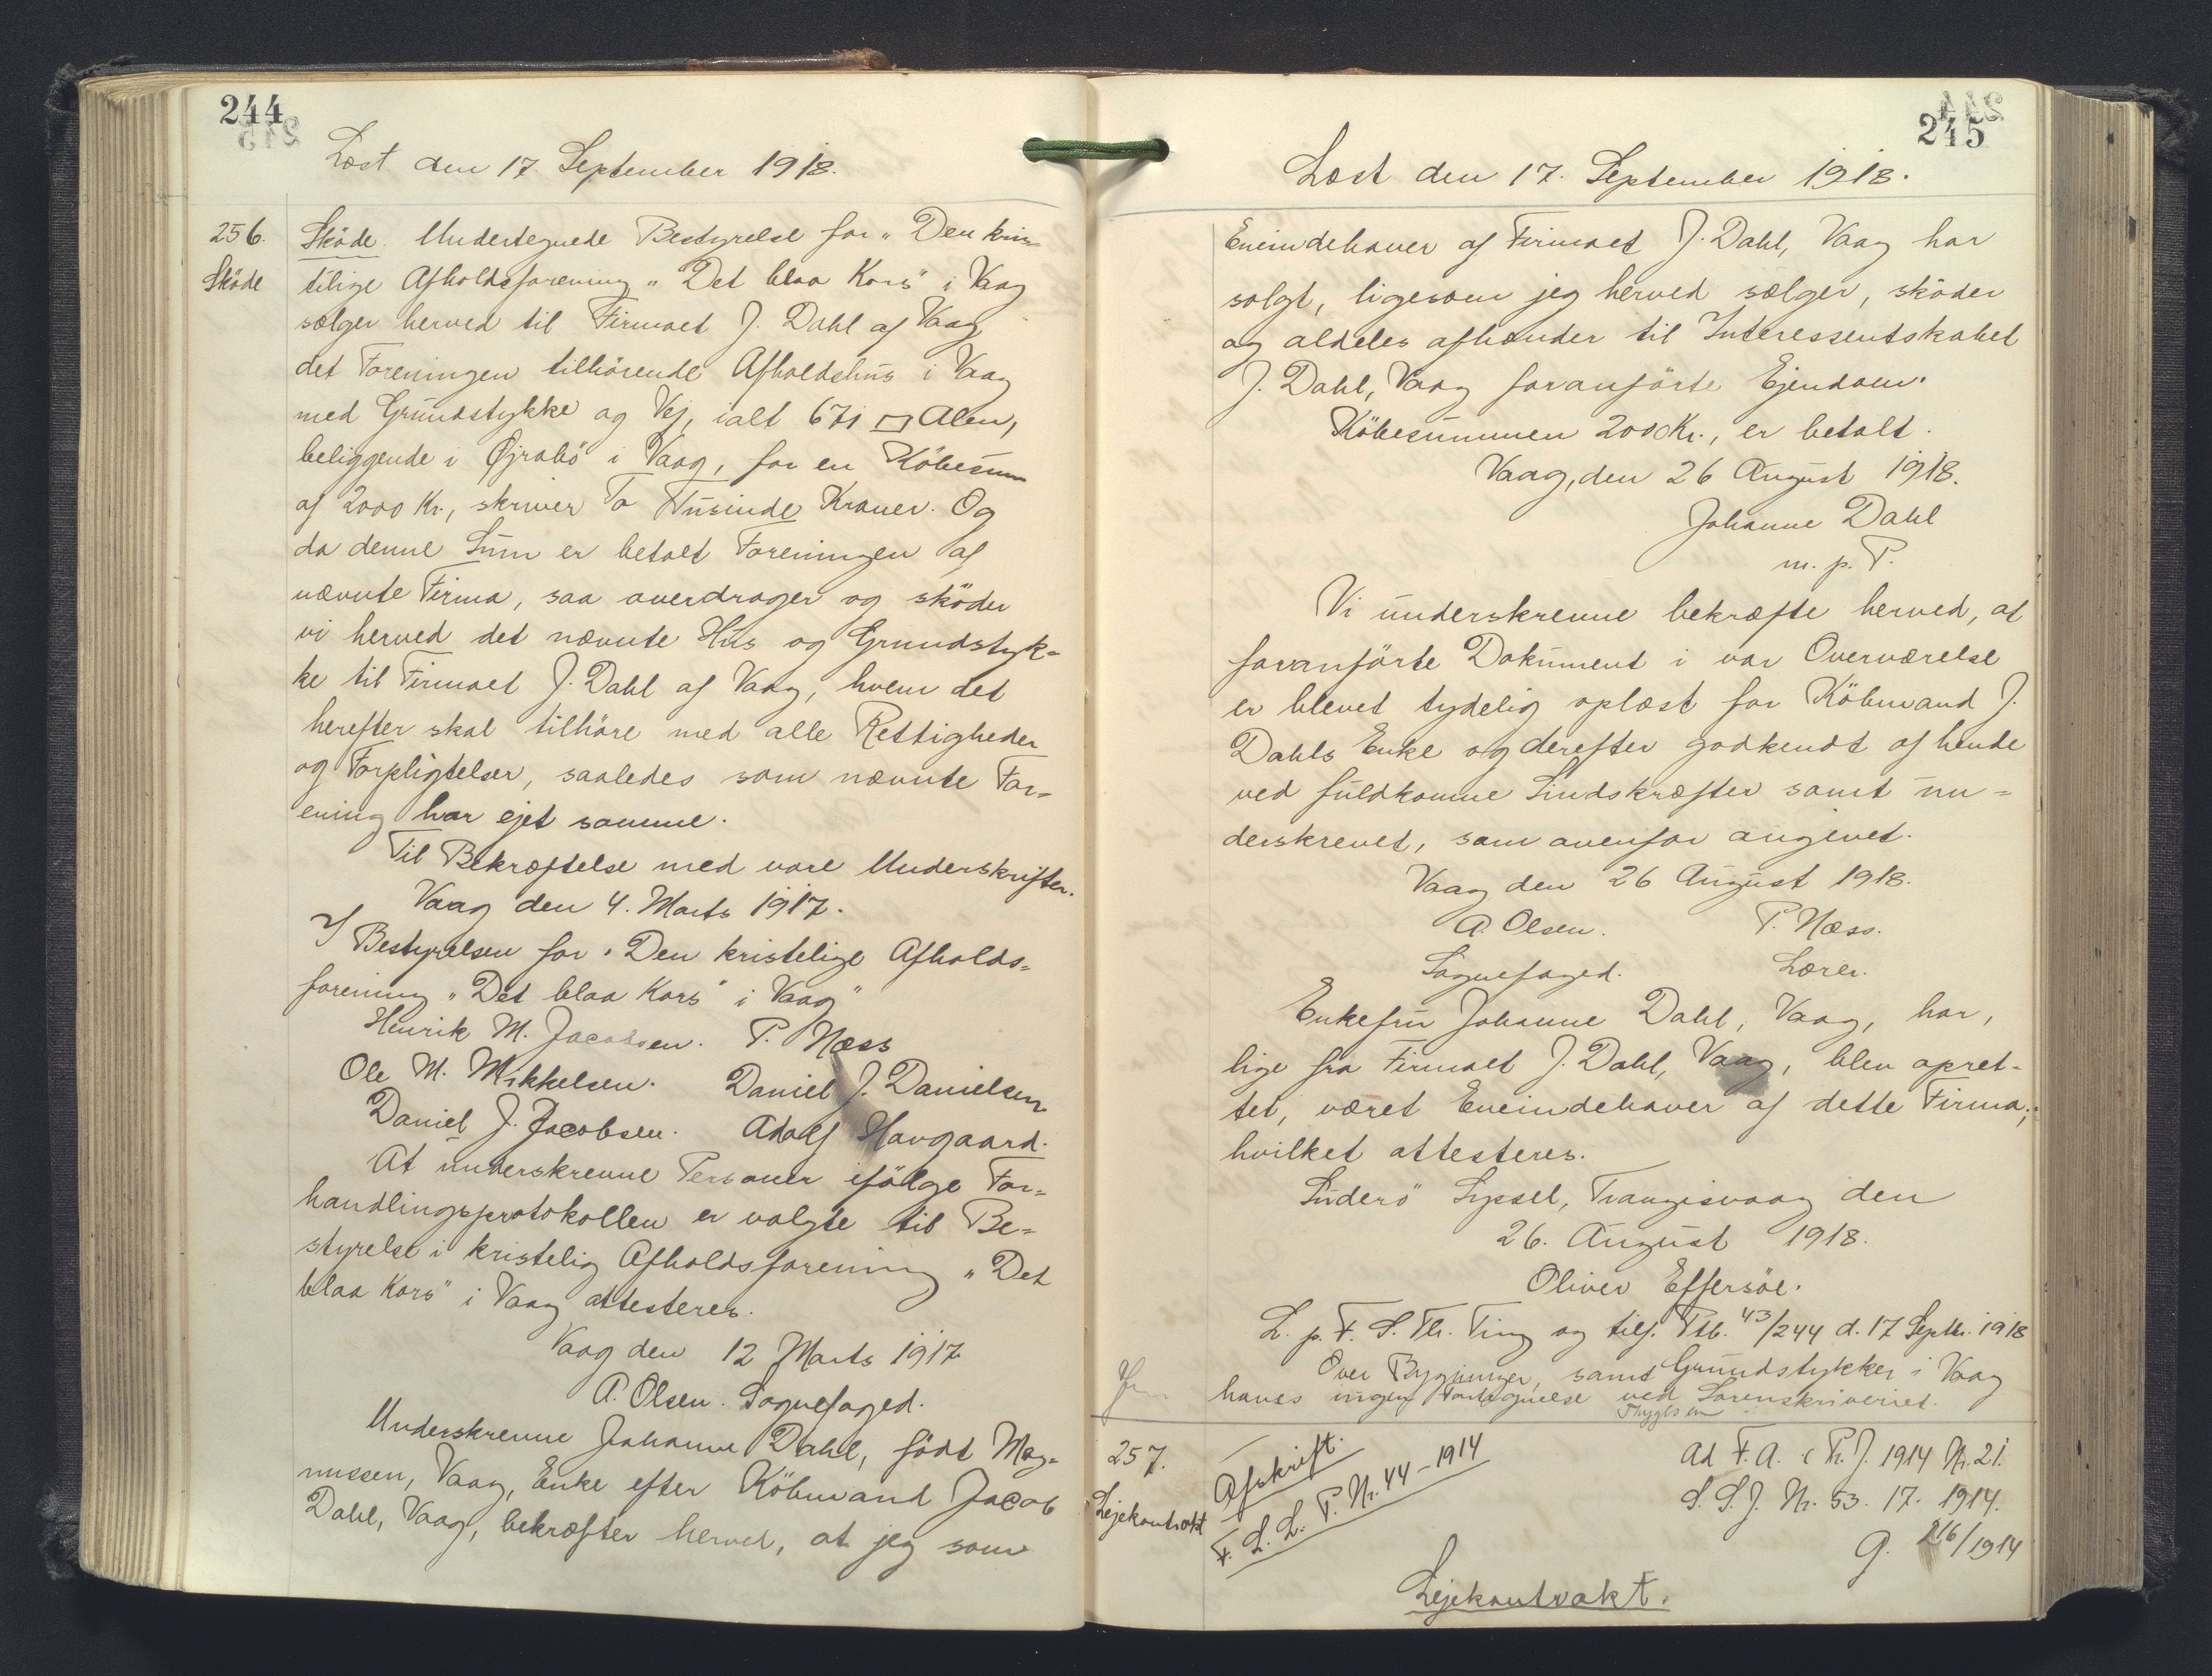 244
Læst den 17. September 1918.
256.
Sköde
Sköde. Undertegnede Bestyrelse for „Den kris-
tilige Afholdsforening „Det blaa Kors" i Vaag
sælger herved til Firmaet J. Dahl af Vaag
det Foreningen tilhörende Afholdshus i Vaag
med Grundstykke og Vej, ialt 671 □ Alen,
beliggende i Øjrabö i Vaag, for en Köbesum
af 2000 Kr., skriver To Tusinde Kroner. Og
da denne Sum er betalt Foreningen af
nævnte Firma, saa overdrager og sköder
vi herved det nævnte Hus og Grundstyk-
ke til Firmaet J. Dahl af Vaag, hvem det
herefter skal tilhöre med alle Rettigheder
og Forpligtelser, saaledes som nævnte For-
ening har ejet samme.
Til Bekræftelse med vore Underskrifter.
Vaag den 4. Marts 1917.
I Bestyrelsen for „Den kristelige Afholds-
forening „Det blaa Kors" i Vaag"
Henrik M. Jacobsen. P. Næss
Ole M. Mikkelsen. Daniel J. Danielsen
Daniel J. Jacobsen. Adolf Havgaard.
At underskrevne Personer ifölge For-
handlingsprotokollen er valgte til Be-
styrelse i kristelig Afholdsforening „Det
blaa Kors" i Vaag attesteres.
Vaag den 12 Marts 1917
A. Olsen. Sognefoged.
Underskrevne Johanne Dahl, födt Mag-
nussen, Vaag, Enke efter Köbmand Jacob
Dahl, Vaag, bekræfter herved, at jeg som
245
Læst den 17. September 1918.
Eneindehaver af Firmaet J. Dahl, Vaag har
solgt, ligesom jeg herved sælger, sköder
og aldeles afhænder til Interessentskabet
J. Dahl, Vaag foranförte Ejendom.
Köbesummen 2000 Kr., er betalt.
Vaag, den 26 August 1918.
Johanne Dahl
m. p. P.
Vi underskrevne bekræfte herved, at
foranförte Dokument i vor Overværelse
er blevet tydelig oplæst for Köbmand J.
Dahls Enke og derefter godkendt af hende
ved fuldkomne Sindskræfter samt un-
derskrevet, som ovenfor angivet.
Vaag den 26 August 1918.
A. Olsen. P. Næss.
Sognefoged. Lærer.
Enkefru Johanne Dahl, Vaag, har,
lige fra Firmaet J. Dahl, Vaag, blev opret-
tet, været Eneindehaver af dette Firma;
hvilket attesteres.
Suderö Syssel, Trangisvaag den
26. August 1918.
Oliver Effersöe.
L. p. F. S. Th. Ting og tilf. Ptb. 43/244 d. 17 Septb. 1918
Over Bygninger, samt Grundstykker i Vaag
haves ingen Fortegnelse ved Sorenskriveriet.
257.
Lejekontrakt
Afskrift.
F. L. L. P. Nr. 44 - 1914
Ad F. A. i Th. J. 1914 Nr. 21.
S. S. J. Nr. 53. 17. 1914.
G. 216/1914
Lejekontrakt.